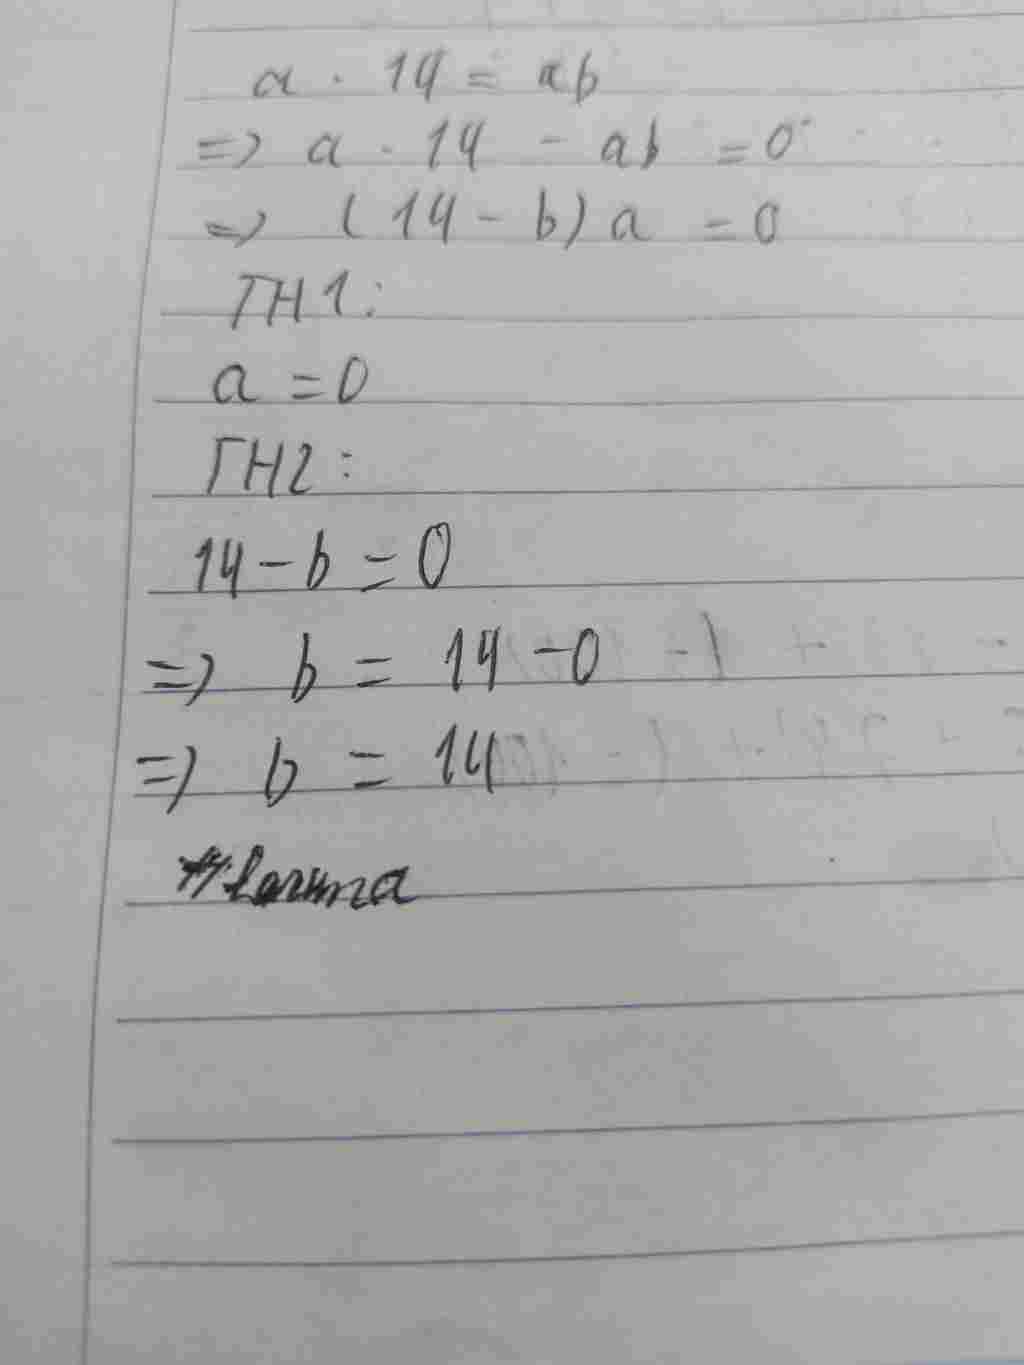 a . 14 = ab
=> a . 14 - ab = 0
=> (14 - b) a = 0
TH1:
a = 0
TH2:
14 - b = 0
=> b = 14 - 0
=> b = 14